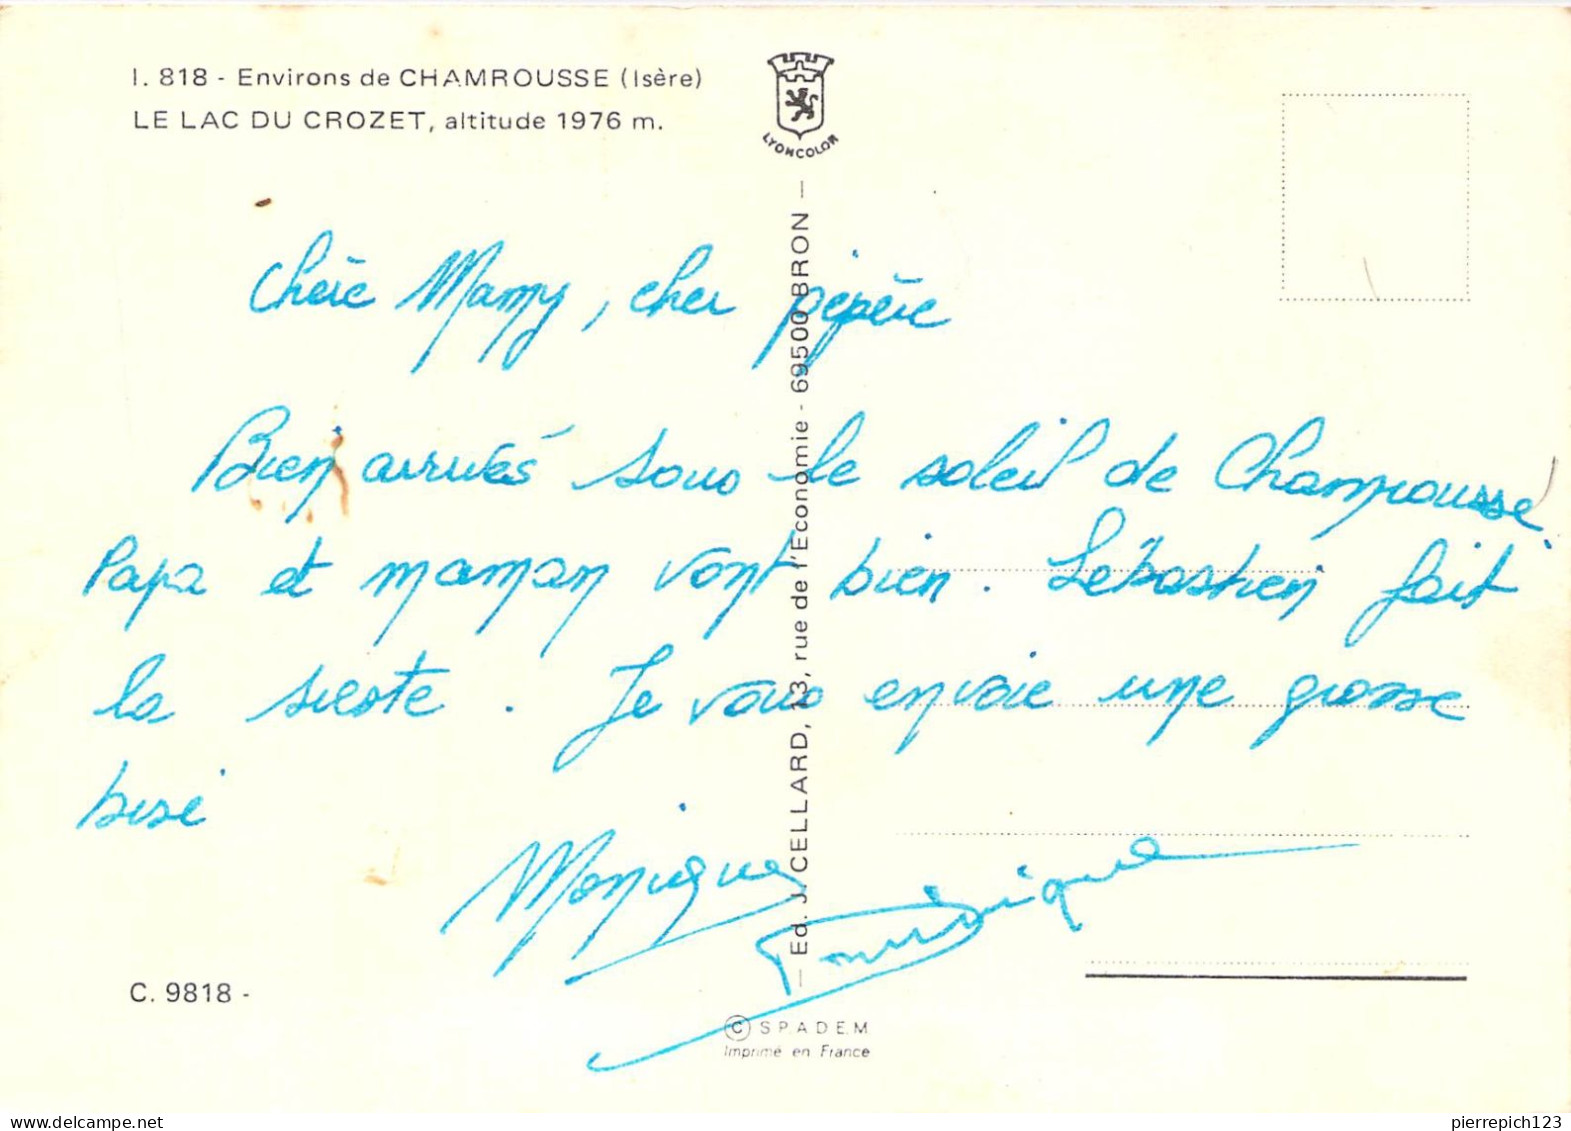 I. 818 - Environs de CHAMROUSSE (Isère)
LE LAC DU CROZET, altitude 1976 m.
LYONCOLOR
Chère Mamy, cher pépère
Bien arrivés sous le soleil de Chamrousse
Papa et maman vont bien. Sébastien fait
la sieste. Je vous envoie une grosse
bise
Monique
Dominique
Ed. J. CELLARD, 13, rue de l'Economie - 69500 BRON
C. 9818 -
© S.P.A.D.E.M
Imprimé en France
pierrepich123